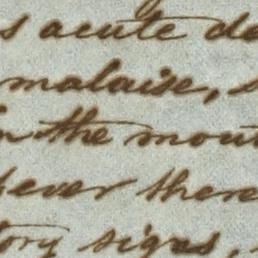 s acute de
malaise, s
in the mout
fever there
tory signs,